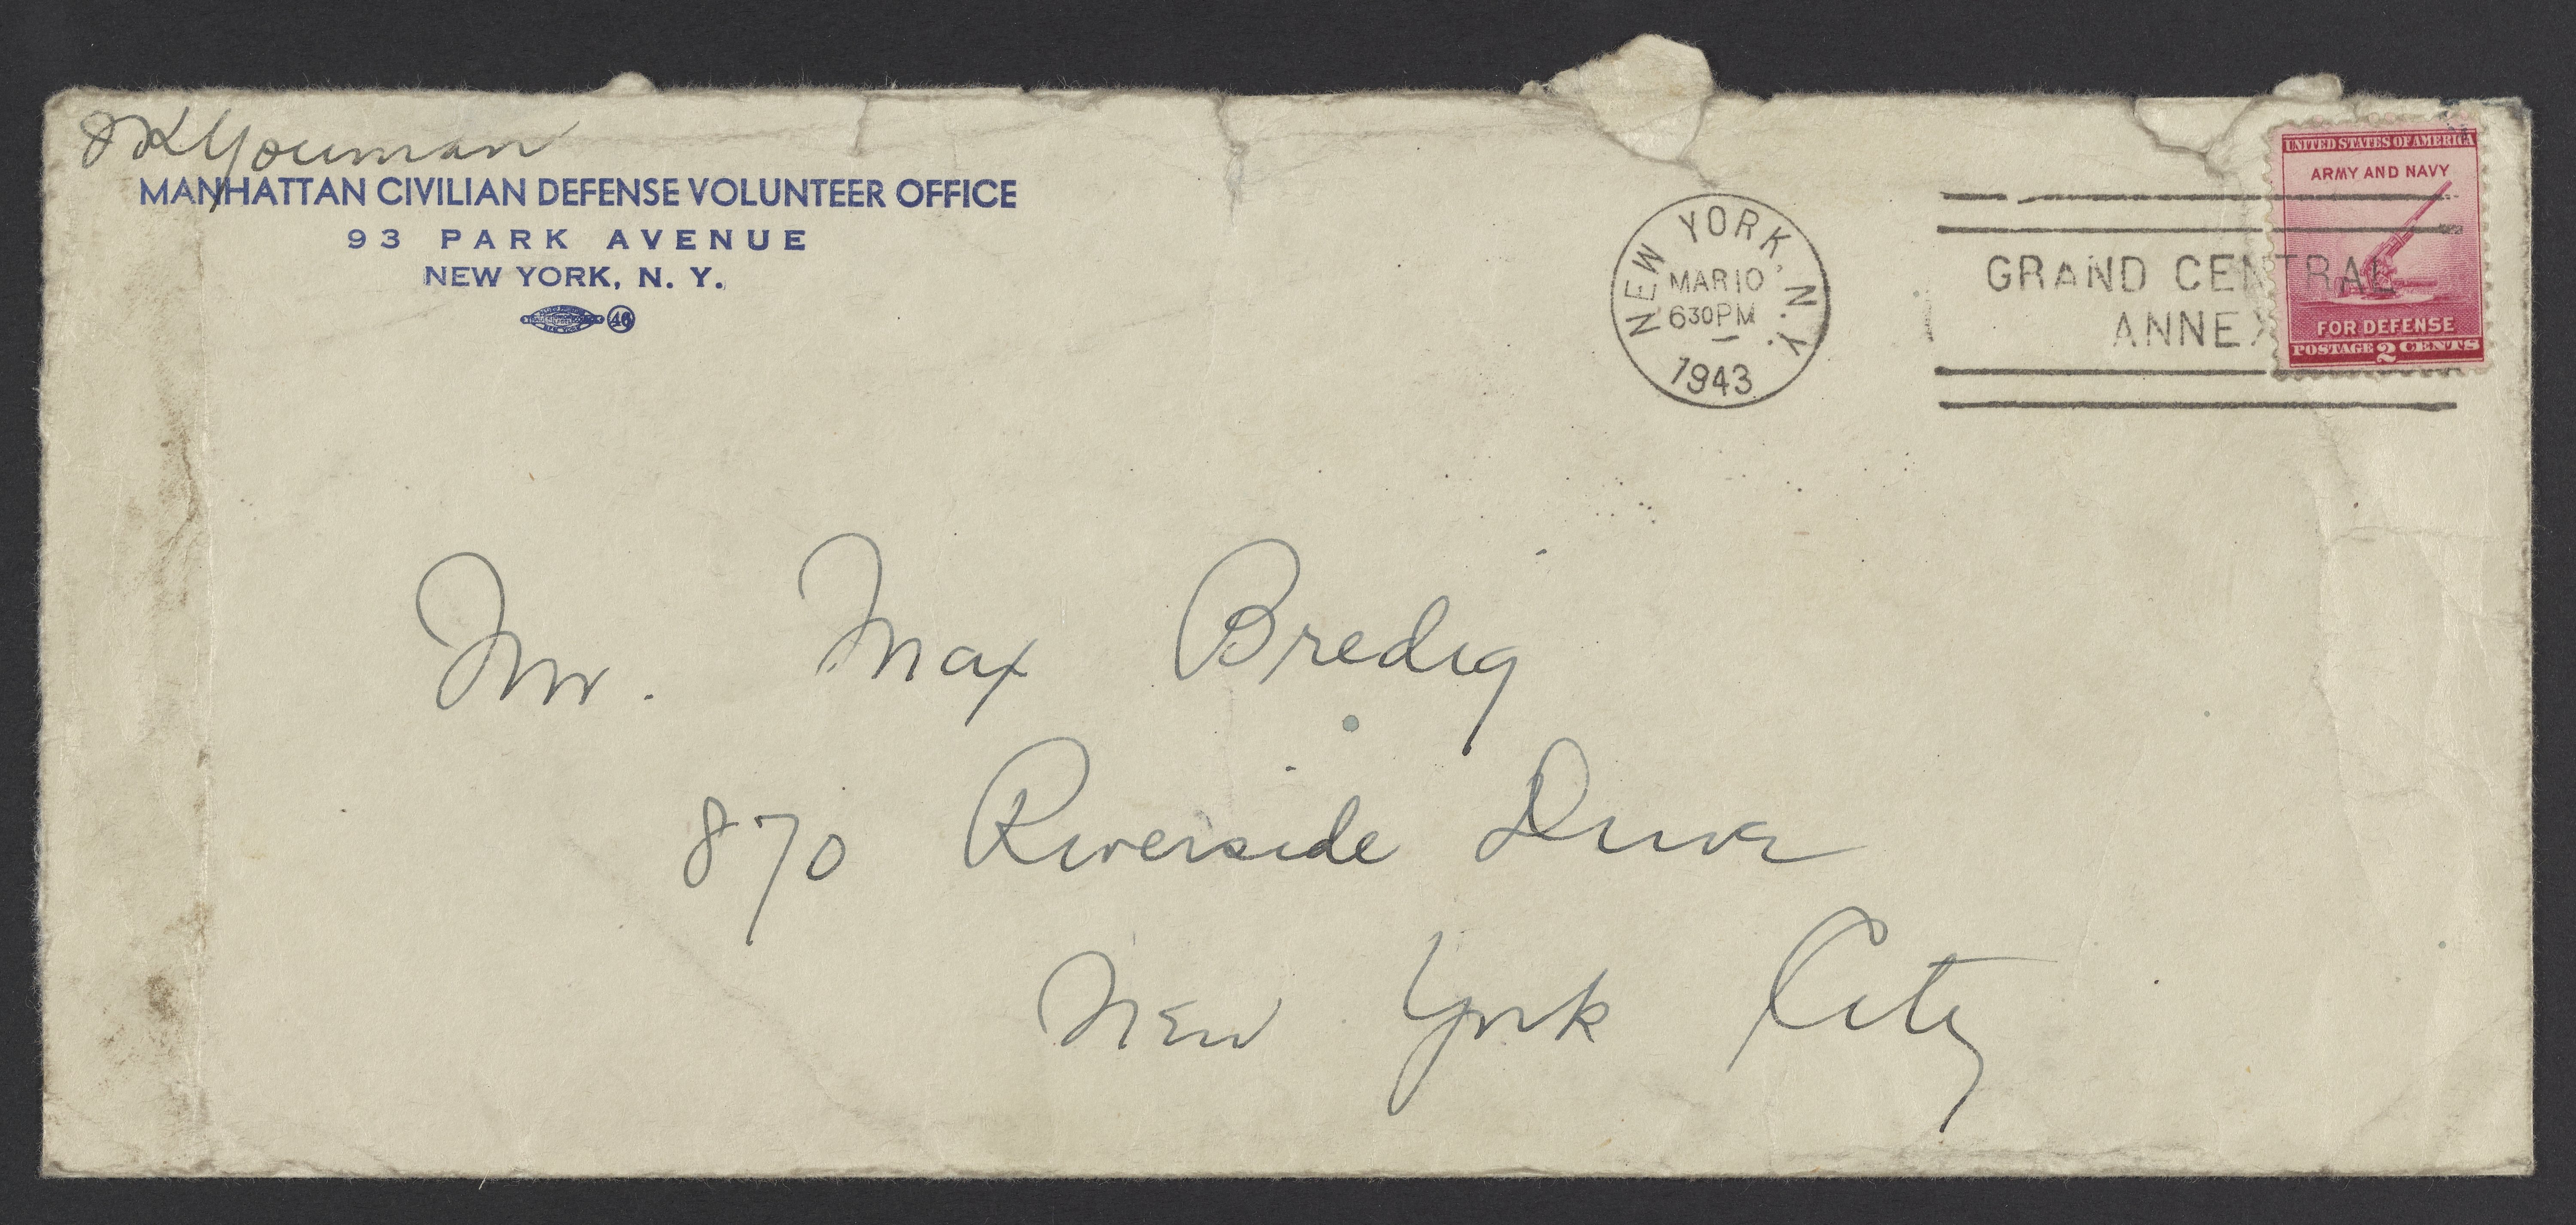 J K Youman
MANHATTAN CIVILIAN DEFENSE VOLUNTEER OFFICE
93 PARK AVENUE
NEW YORK, N. Y.
46
NEW YORK, N.Y.
MAR 10
630PM
1943
GRAND CENTRAL
ANNEX
UNITED STATES OF AMERICA
ARMY AND NAVY
FOR DEFENSE
POSTAGE 2 CENTS
Mr. Max Bredig
870 Riverside Drive
New York City